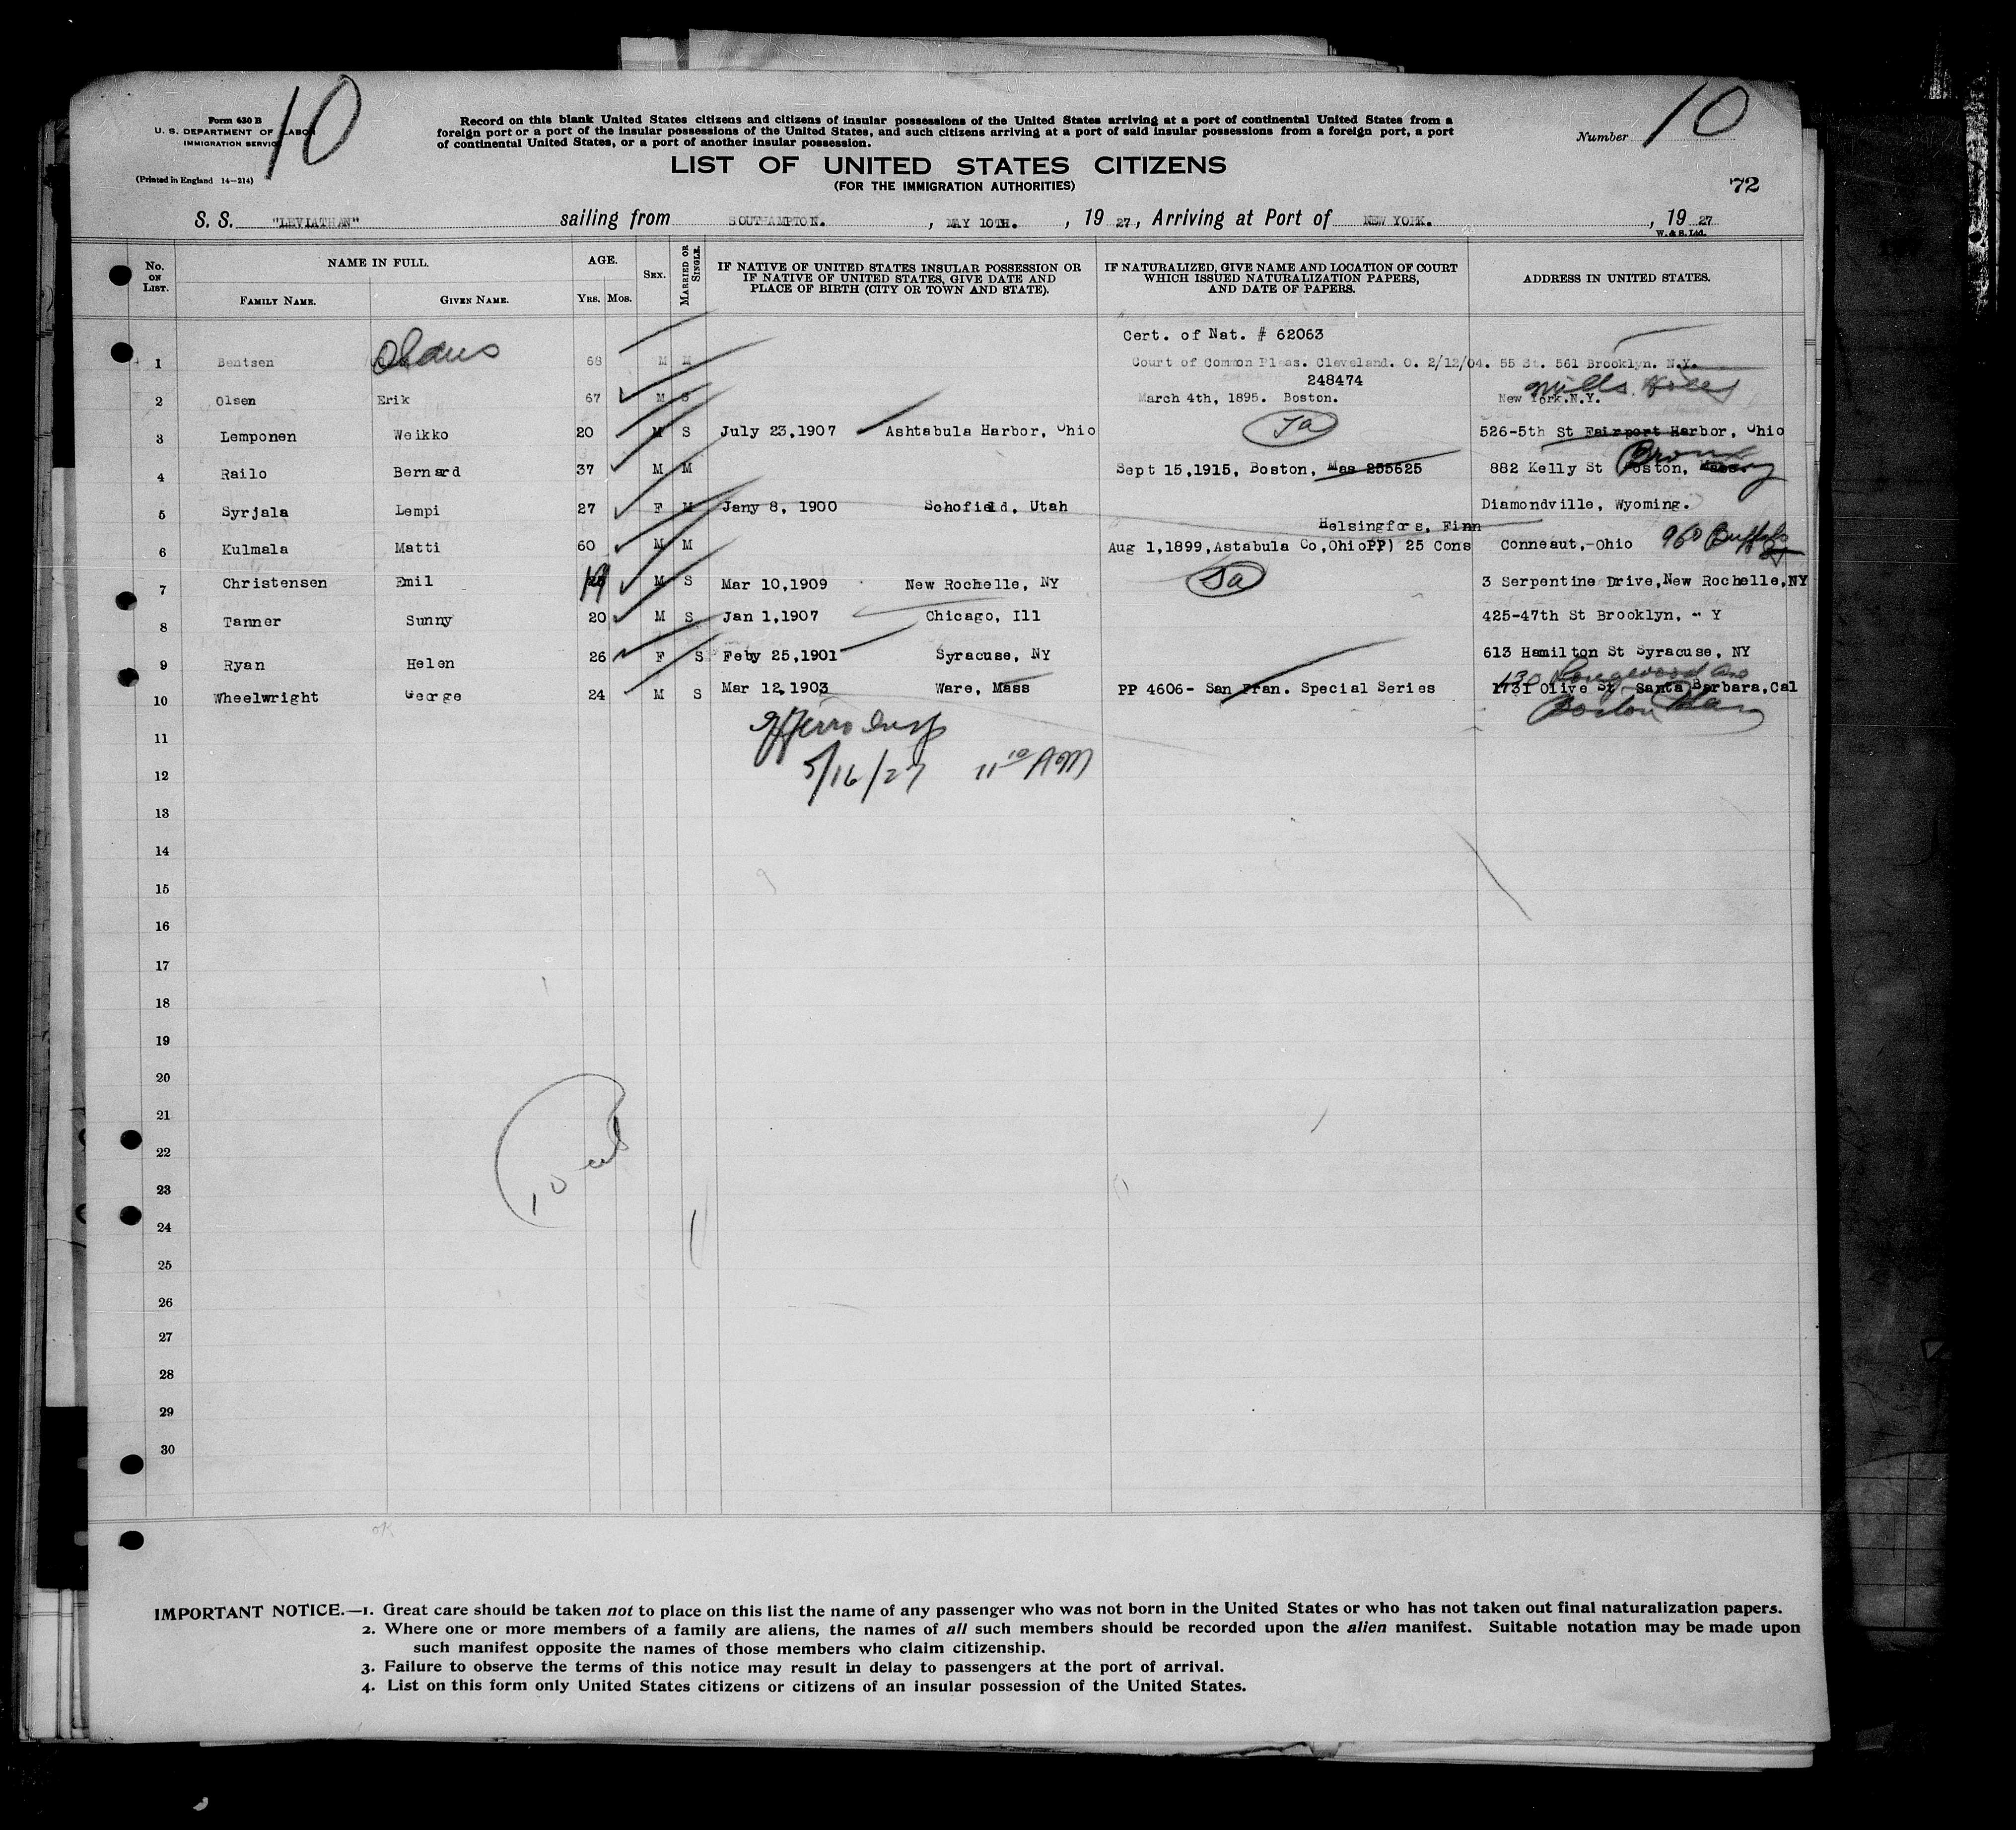 10
10
Form 630 B
U. S. DEPARTMENT OF LABOR
IMMIGRATION SERVICE
(Printed in England 14—214)
Record on this blank United States citizens and citizens of insular possessions of the United States arriving at a port of continental United States from a
foreign port or a port of the insular possessions of the United States, and such citizens arriving at a port of said insular possessions from a foreign port, a port
of continental United States, or a port of another insular possession.
Number
LIST OF UNITED STATES CITIZENS
(FOR THE IMMIGRATION AUTHORITIES)
72
S. S. "LEVIATHAN" sailing from SOUTHAMPTON. , MAY 10TH. , 19 27, Arriving at Port of NEW YORK. , 19 27
W. & S. Ltd.
No. ON LIST. NAME IN FULL. AGE. SEX. MARRIED OR SINGLE. IF NATIVE OF UNITED STATES INSULAR POSSESSION OR IF NATIVE OF UNITED STATES, GIVE DATE AND PLACE OF BIRTH (CITY OR TOWN AND STATE). IF NATURALIZED, GIVE NAME AND LOCATION OF COURT WHICH ISSUED NATURALIZATION PAPERS, AND DATE OF PAPERS. ADDRESS IN UNITED STATES.
FAMILY NAME. GIVEN NAME. YRS. MOS.
Cert. of Nat. # 62063
1 Bentsen Olaus 68 M M Court of Common Pleas. Cleveland. O. 2/12/04. 55 St. 561 Brooklyn. N.Y.
248474 Mills Hotel
2 Olsen Erik 67 M S March 4th, 1895. Boston. New York.N.Y.
3 Lemponen Weikko 20 M S July 23,1907 Ashtabula Harbor, Ohio Ja 526-5th St Fairport Harbor, Ohio
4 Railo Bernard 37 M M Sept 15,1915, Boston, Mas 255625 882 Kelly St Boston, Mass. Bronx NY
5 Syrjala Lempi 27 F M Jany 8, 1900 Schofield, Utah Diamondville, Wyoming.
Helsingfors, Finn
6 Kulmala Matti 60 M M Aug 1,1899,Astabula Co,Ohio PP) 25 Cons Conneaut,-Ohio 960 Buffalo St
7 Christensen Emil 19 M S Mar 10,1909 New Rochelle, NY Ja 3 Serpentine Drive,New Rochelle,NY
8 Tanner Sunny 20 M S Jan 1,1907 Chicago, Ill 425-47th St Brooklyn, - Y
9 Ryan Helen 26 F S Feby 25,1901 Syracuse, NY 613 Hamilton St Syracuse, NY
130 Longwood Ave
10 Wheelwright George 24 M S Mar 12,1903 Ware, Mass PP 4606- San Fran. Special Series 1731 Olive St Santa Barbara,Cal
Boston Mass
11
5/16/27 11 10 AM
12
13
14
15
16
17
18
19
20
21
22
23
24
25
26
27
28
29
30
OK
IMPORTANT NOTICE.—1. Great care should be taken not to place on this list the name of any passenger who was not born in the United States or who has not taken out final naturalization papers.
2. Where one or more members of a family are aliens, the names of all such members should be recorded upon the alien manifest. Suitable notation may be made upon
such manifest opposite the names of those members who claim citizenship.
3. Failure to observe the terms of this notice may result in delay to passengers at the port of arrival.
4. List on this form only United States citizens or citizens of an insular possession of the United States.